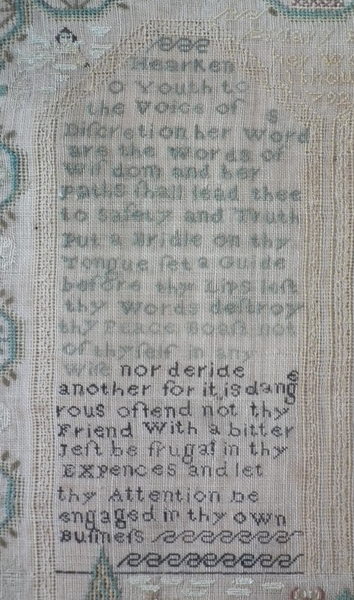 Hearken
O Youth to
the Voice of
Diſcretion her Words
are the Words of
Wiſdom and her
paths ſhall lead thee
to Safety and Truth
Put a Bridle on thy
Tongue ſet a Guide
before thy Lips leſt
thy Words deſtroy
thy Peace Boaſt not
of thyſelf in any
Wiſe nor deride
another for it is dang
rous oftend not thy
Friend With a bitter
Jeſt be frugal in thy
Expences and let
thy Attention be
engaged in thy own
Buſineſs